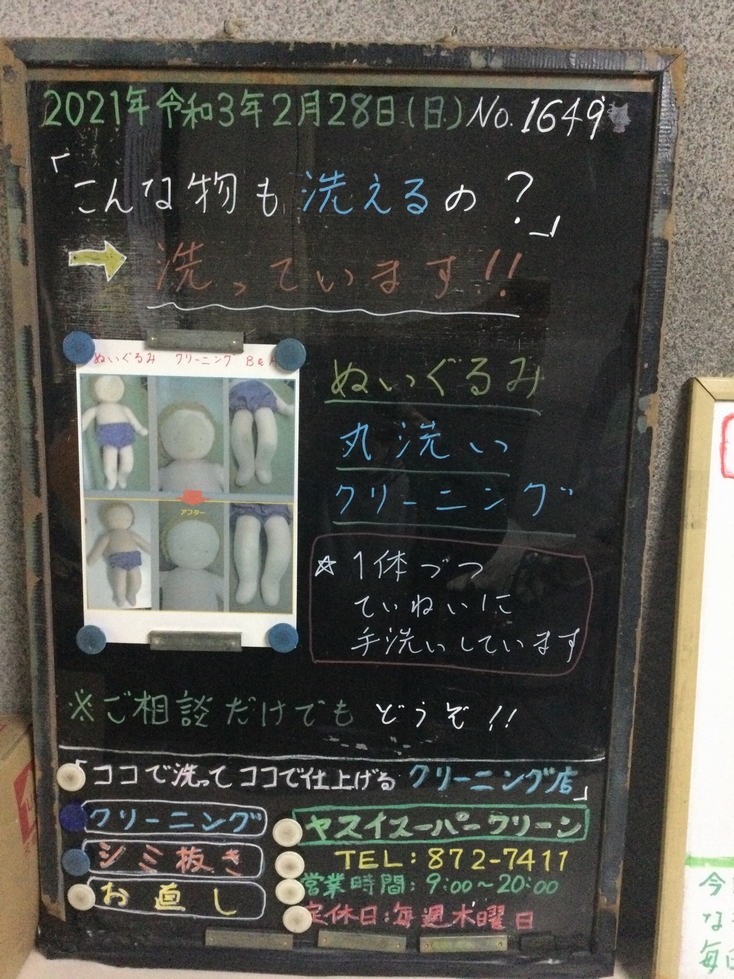 2021年令和3年2月28日(日)No.1649
「こんな物も洗えるの?」
洗っています!!
ぬいぐるみ クリーニング
アフター
ぬいぐるみ
丸洗い
クリーニング
☆1体づつ
ていねいに
手洗いしています
※ご相談だけでもどうぞ!!
「ココで洗ってココで仕上げるクリーニング店」
クリーニング
シミ抜き
お直し
ヤスイスーパークリーン
TEL:872-7411
営業時間:9:00~20:00
定休日:毎週木曜日
今
な
毎日